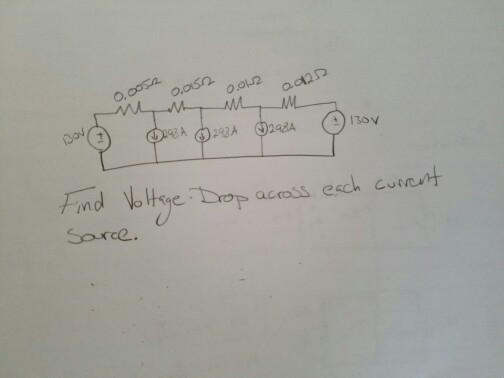 0.005Ω 0.015Ω 0.01Ω 0.012Ω
130V 293A 293A 293A 130V
Find Voltage Drop across each current
source.